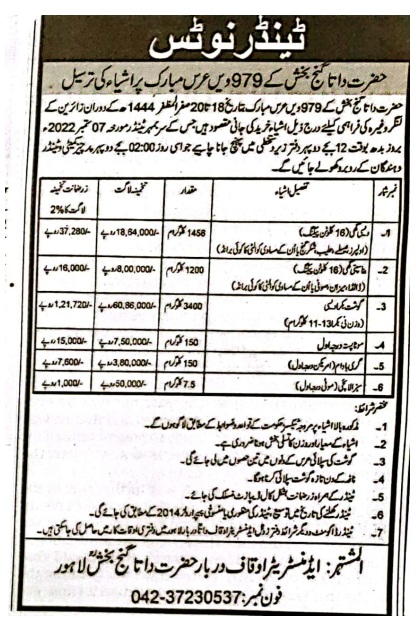 ٹینڈر نوٹس
حضرت داتا گنج بخش کے 979ویں عرس مبارک پر اشیاء کی ترسیل
حضرت داتا گنج بخش کے 979ویں عرس مبارک بتاریخ 18 تا 20 صفر المظفر 1444ھ کے دوران زائرین کے
لنگر وغیرہ کی فراہمی کیلئے درج ذیل اشیاء خرید کی جانی مقصود ہیں جس کے سربمہر ٹینڈر مورخہ 07 ستمبر 2022ء
بروز بدھ بوقت 12 بجے دوپہر دفتر زیر دستخطی میں پہنچ جانا چاہیے جو اسی روز 02:00 بجے دوپہر پرچیز کمیٹی و ٹینڈر
دہندگان کے روبرو کھولے جائیں گے۔
نمبر شمار تفصیل اشیاء مقدار تخمینہ لاگت زر ضمانت تخمینہ لاگت کا 2%
1- دیسی گھی (16 کلو ٹن پیکنگ) 1456 کلوگرام 18,64,000/- روپے 37,280/- روپے
2- بناسپتی گھی (16 کلو ٹن پیکنگ) 1200 کلوگرام 8,00,000/- روپے 16,000/- روپے
3- گوشت بکرا دیسی 3400 کلوگرام 60,86,000/- روپے 1,21,720/- روپے
(وزن فی بکرا 13-11 کلوگرام)
4- سونا پت درجہ اول 150 کلوگرام 7,50,000/- روپے 15,000/- روپے
5- گری بادام (امریکن درجہ اول) 150 کلوگرام 3,80,000/- روپے 7,600/- روپے
6- سبز الائچی (موٹی درجہ اول) 7.5 کلوگرام 50,000/- روپے 1,000/- روپے
مختصر شرائط:
1- مذکورہ بالا اشیاء پر مروجہ ٹیکس حکومت کے قواعد و ضوابط کے مطابق لاگو ہوں گے۔
2- اشیاء کے معیار اور وزن کا تسلی بخش ہونا ضروری ہے۔
3- گوشت کی سپلائی عرس کے دنوں میں تین حصوں میں لی جائے گی۔
4- ناغہ کے دن تازہ گوشت سپلائی کرنا ہوگا۔
5- ٹینڈر کے ہمراہ زر ضمانت بشکل کال ڈیپازٹ منسلک کی جائے۔
6- ٹینڈر کھلنے کی تاریخ میں توسیع، ٹینڈر کی منظوری یا منسوخی پیپرا رولز 2014 کے مطابق کی جائے گی۔
7- ٹینڈر ڈاکومنٹ و دیگر شرائط دفتر ایڈمنسٹریٹر اوقاف داتا دربار لاہور میں دفتری اوقات کار میں حاصل کی جاسکتی ہیں۔
المشتہر: ایڈمنسٹریٹر اوقاف دربار حضرت داتا گنج بخشؒ لاہور
فون نمبر: 042-37230537